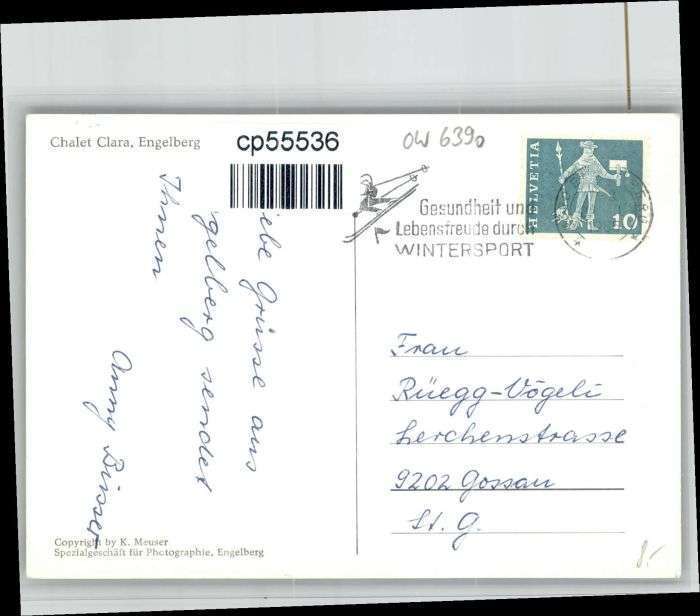 Chalet Clara, Engelberg
cp55536
OW 6390
Gesundheit un
Lebensfreude durc
WINTERSPORT
HELVETIA
10
ebe Grüsse aus
gelberg sendet
Ihnen
Anny
Frau
Rüegg-Vögeli
Lerchenstrasse
9202 Gossau
St. G.
Copyright by K. Meuser
Spezialgeschäft für Photographie, Engelberg
8.-